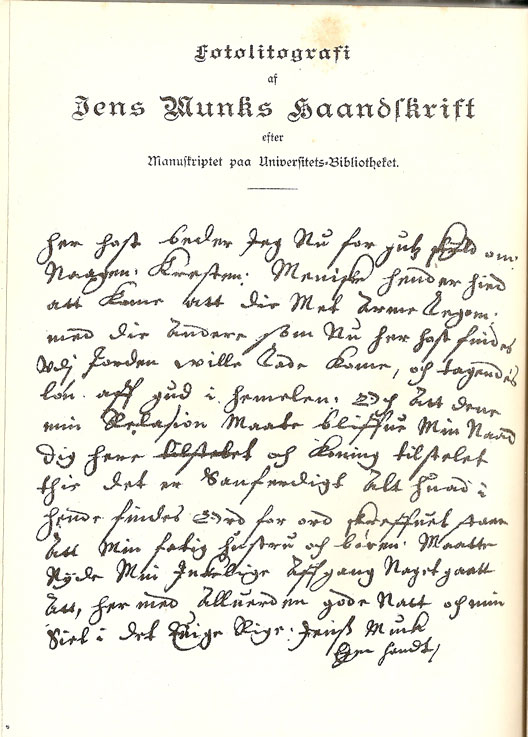 Fotolitografi
af
Jens Munks Haandſkrift
efter
Manuſkriptet paa Univerſitets-Bibliotheket.
her hoſt beder Jeg Nu for gutz ſkyld om
Naagen: Kreſten: Meniſke hender hied
att Kome att die Met Arme Legom
med die Andere ſom Nu her hoſt findes
Vdj Jorden wille Lade Kome, och tagendes
lön aff gud i hemelen: Och Att dene
min Relaſion Maate bliffue Min Naad
dig here tilſtelet och Koning tilſtelet
thie det er Sanferdigt Alt huad i
hende findes Ord for ord ſkreffuet ſaa
Att Min fatig huſtru och bören: Maatte
Nÿde Min Jekelige Affgang Naget gaatt
Att, her med Alluerden gode Natt och min
Siel i det Euige Rige: Jenſſ Munck
Egen handt/